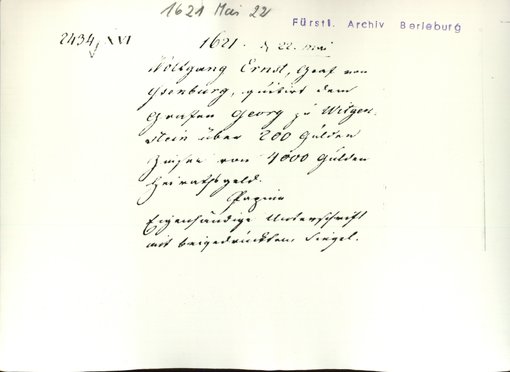 1621 Mai 22
Fürstl. Archiv Berleburg
2434, XVI
1621. d 22. Mai
Wolfgang Ernst, Graf von
Ysenburg, quitirt dem
Grafen Georg zu Witgen-
stein über 200 Gulden
Zinsen von 4000 Gulden
Heirathsgeld.
Papier
Eigenhändige Unterschrift
mit beigedrücktem Siegel.